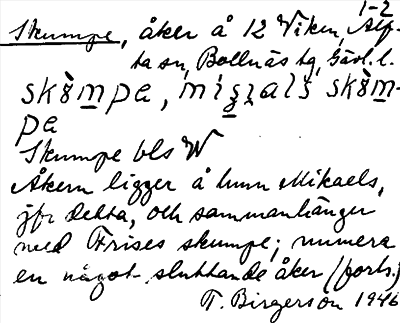 1-2
Skumpe, åker å 12 Viken, Alf-
ta sn, Bollnäs tg, Gävl. l.
skømpa, migzals skøm-
pa
Skumpe bls W
Åkern ligger å hmn Mikaels,
jfr detta, och sammanhänger
med Frises skumpe; numera
en något sluttande åker (forts.)
T. Birgerson 1946